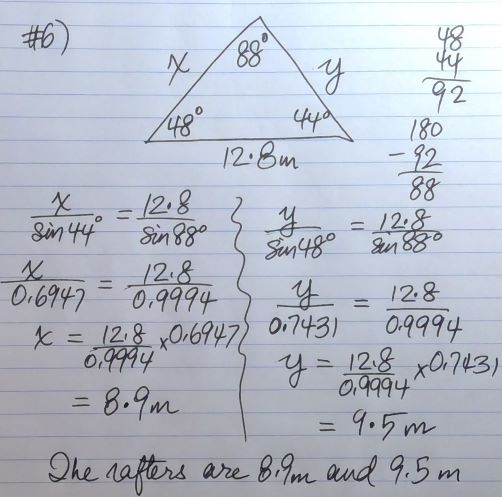 #6)
88°
x
y
48°
44°
12.8m
48
44
92
180
- 92
88
x/sin44° = 12.8/sin88°
x/0.6947 = 12.8/0.9994
x = 12.8/0.9994 x0.6947
= 8.9m
y/sin48° = 12.8/sin88°
y/0.7431 = 12.8/0.9994
y = 12.8/0.9994 x0.7431
= 9.5m
The rafters are 8.9m and 9.5m